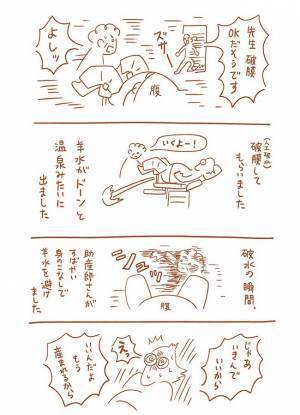 先生 破膜
OKだそうです
ズサー
よしッ
腹
(人工破膜)
破膜して
もらいました
いくよー!
羊水がドーンと
温泉みたいに
出ました
破水の瞬間、
助産師さんが
すばやい
身のこなしで
羊水を避け
ました
腹
じゃあ
いきんで
いいから
えっ
いいんだよ
もう
産まれるから